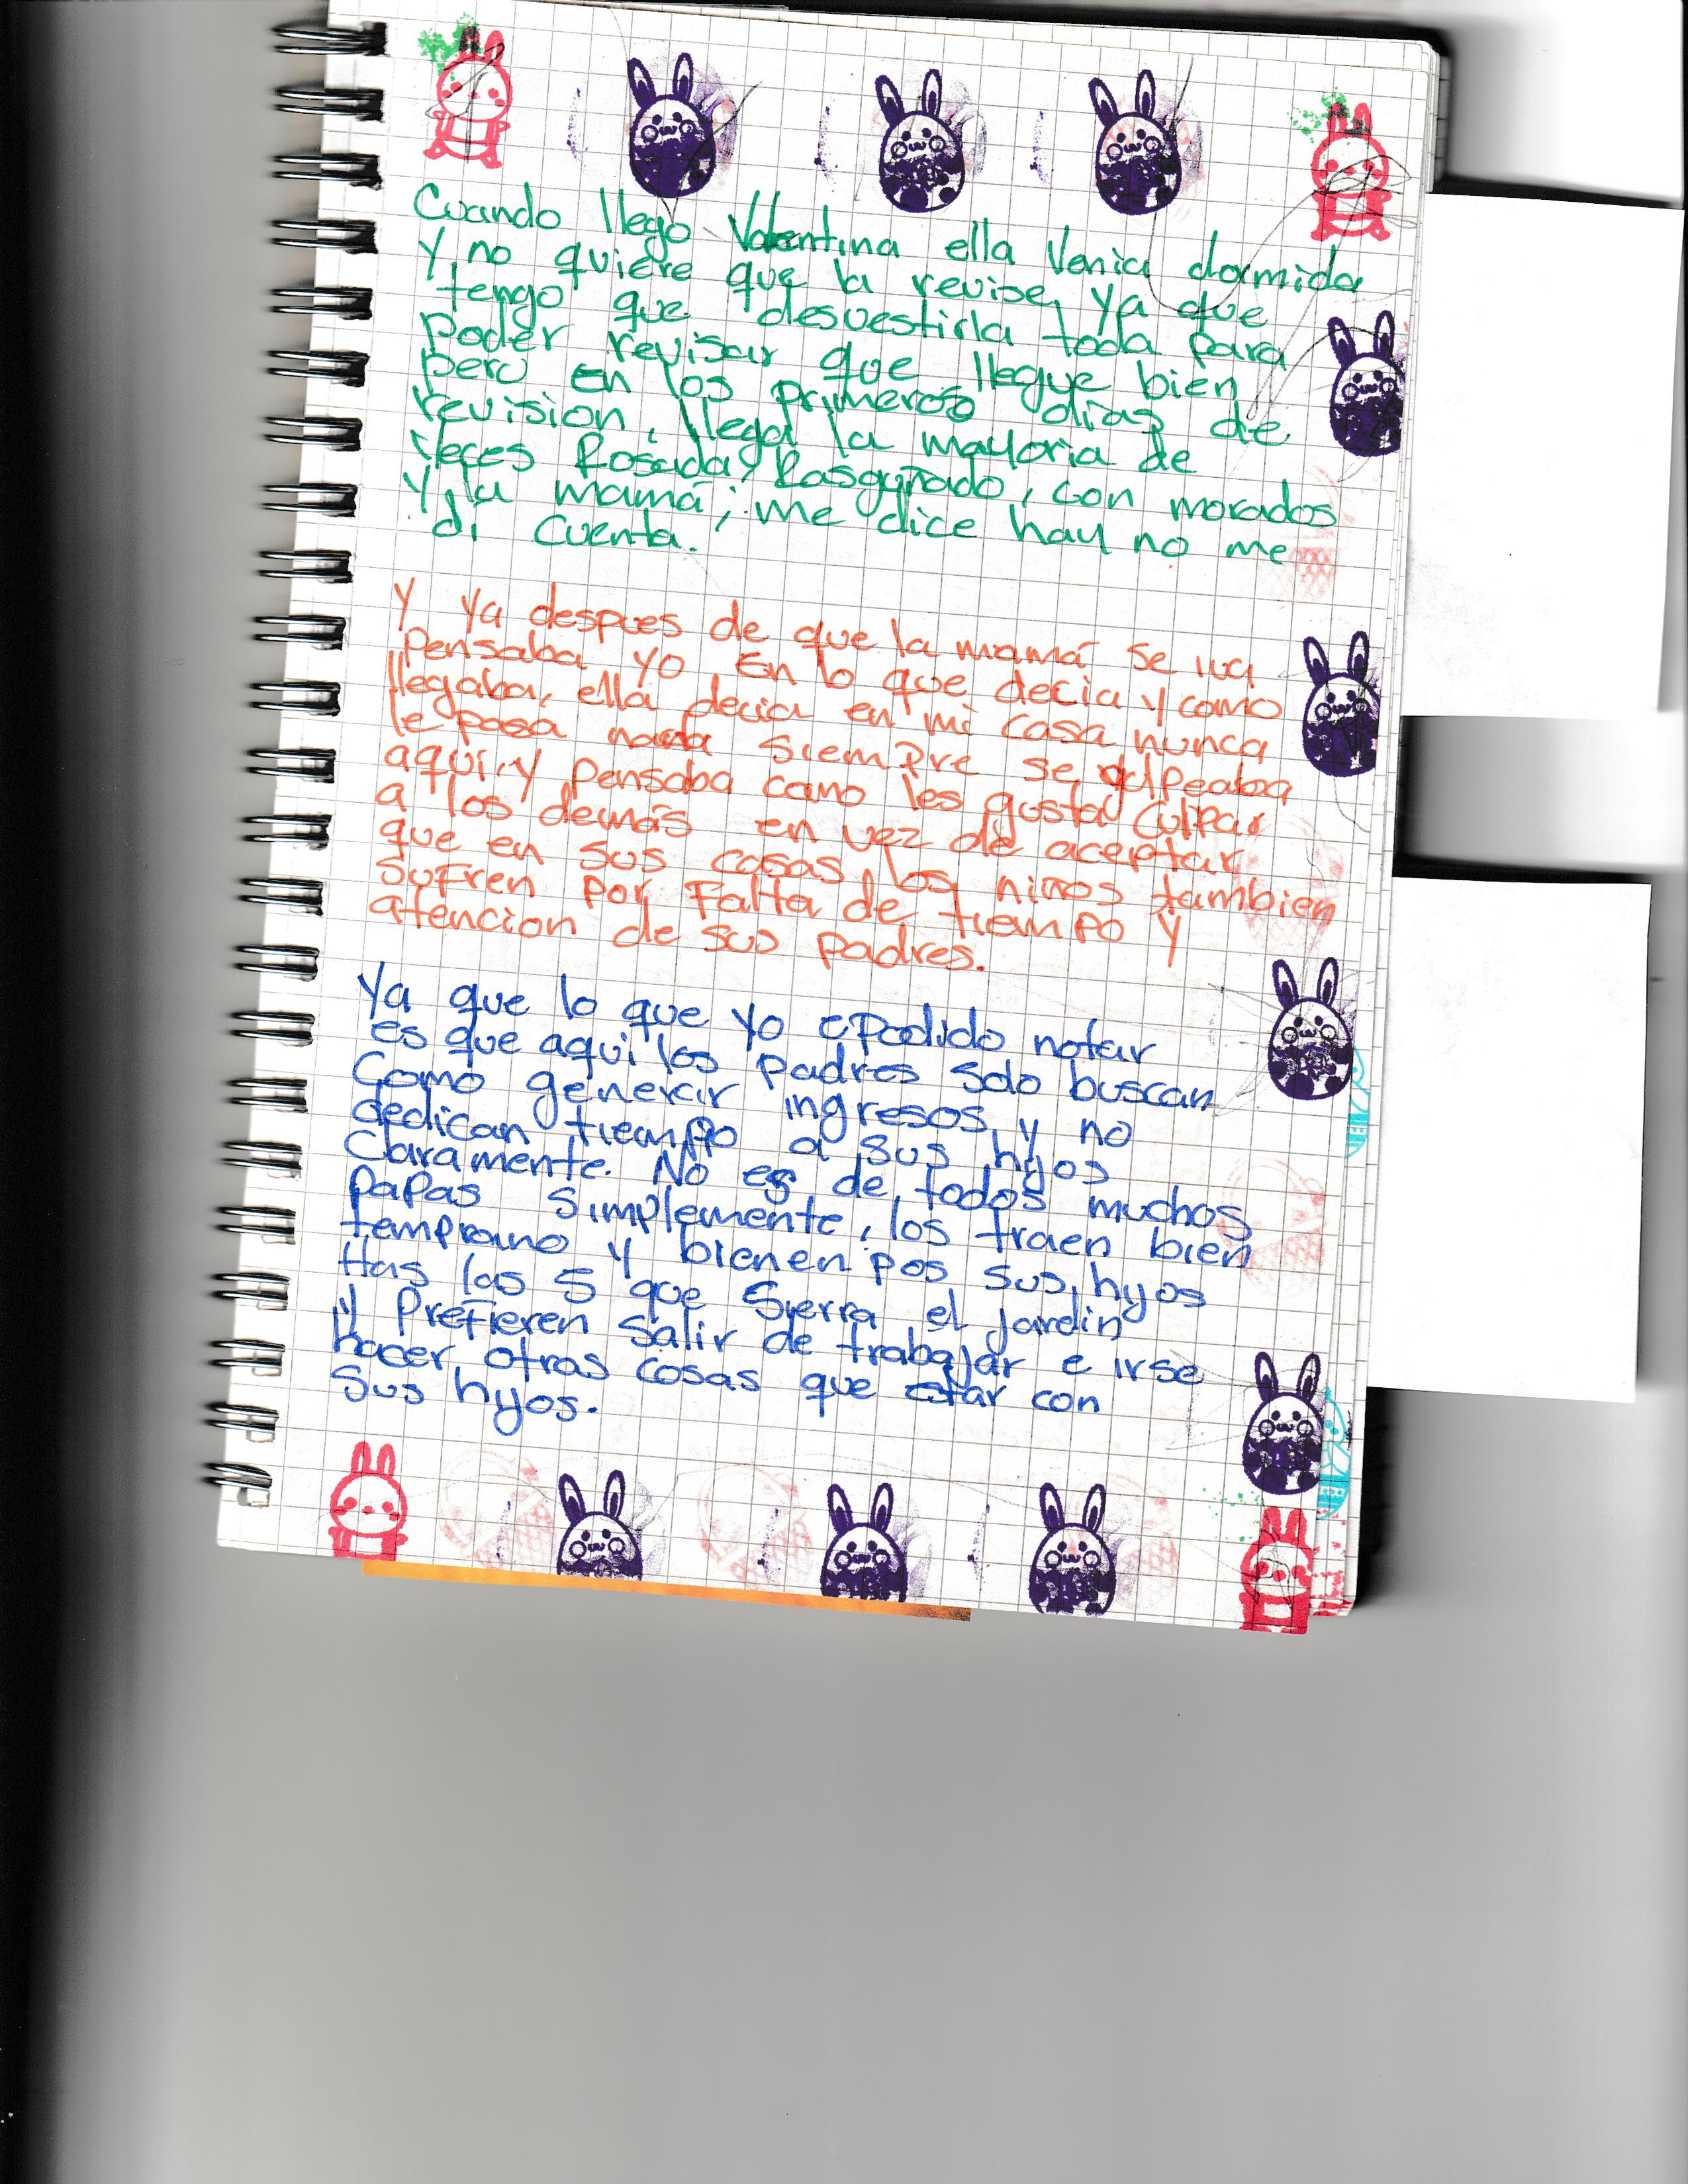 Cuando llego Valentina ella Venia dormida
y no quiere que la revise, ya que
tengo que desvestirla toda para
poder revisar que llegue bien
pero en los primeros días de
revision, llega la mayoria de
veces Rosada, Rasguñado, con morados
y la mamá; me dice hay no me
di cuenta.
Y ya despues de que la mamá se iva
pensaba yo En lo que decia y como
llegaba, ella decia en mi casa nunca
le pasa nada siempre se golpeaba
aqui, y pensaba como les gusta culpar
a los demás en vez de aceptar
que en sus casas los niños tambien
sufren por Falta de tiempo y
atencion de sus padres.
Ya que lo que yo e podido notar
es que aqui los padres solo buscan
Como generar ingresos, y no
dedican tiempo a sus hijos
Claramente. No es de todos muchos
papas simplemente, los traen bien
temprano y bienen pos sus hijos
Has las 5 que Sierra el Jardin
y Prefieren salir de trabajar e irse
hacer otras cosas que estar con
Sus hijos.